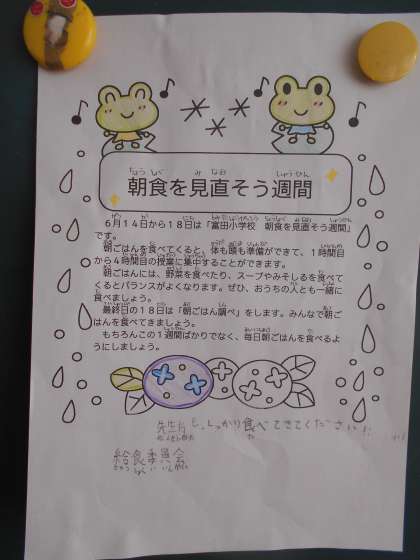 朝食を見直そう週間
6月14日から18日は「富田小学校 朝食を見直そう週間」
です。
朝ごはんを食べてくると、体も頭も準備ができて、1時間目
から4時間目の授業に集中することができます。
朝ごはんには、野菜を食べたり、スープやみそしるを食べて
くるとバランスがよくなります。ぜひ、おうちの人とも一緒に
食べましょう。
最終日の18日は「朝ごはん調べ」をします。みんなで朝ご
はんを食べてきましょう。
もちろんこの1週間ばかりでなく、毎日朝ごはんを食べるよ
うにしましょう。
先生方もしっかり食べてきてください!!
給食委員会